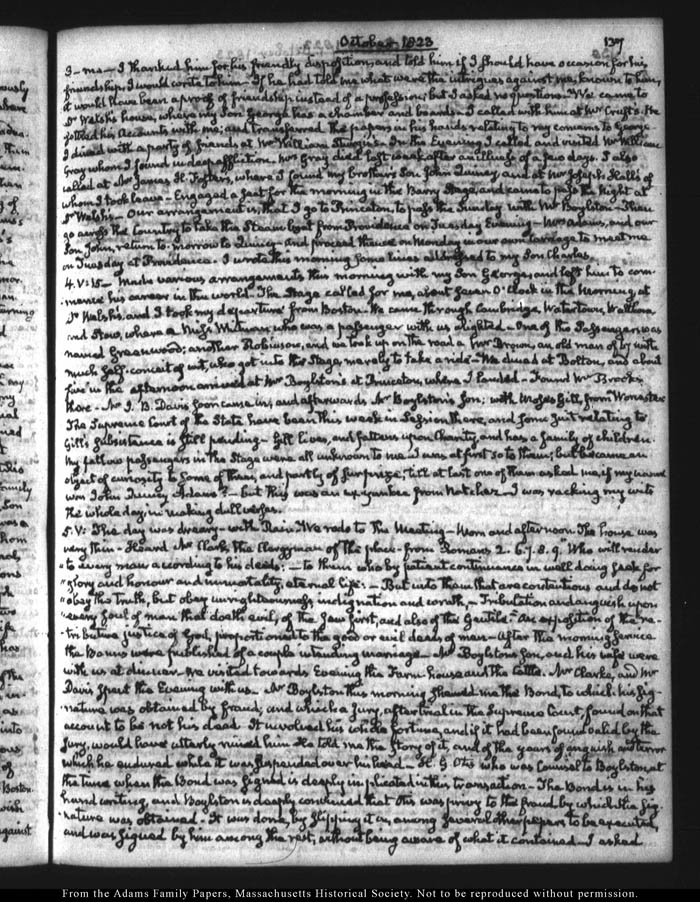 October 1823
137
I - me - I thanked him for his friendly disposition, and told him if I should have occasion for his
friendship, I would write to him - If he had told me what were the intrigues against me, known to him,
it would have been a proof of friendship instead of a profession; but I asked no questions. We came to
Dr Welsh's house, where my Son George has a chamber and boards - I called with him at Mr Cruft's. He
settled his Accounts with me; and transferred the papers in his hands relating to my concerns to George
I dined with a party of friends at Mr William Sturgis's - In the Evening I called and visited Mr William
Gray whom I found in deep affliction. Mrs Gray died last week after an illness of a few days. I also
called at Mr James H. Foster's, where I found my brother's Son John Quincy, and at Mr Joseph Hall's of
whom I took leave - Engaged a seat for the morning in the Barry Stage, and came to pass the Night at
Dr Welsh's - Our arrangement is, that I go to Princeton, to pass the Sunday with Mr Boylston - Then
go across the Country to take the Steam boat from Providence on Tuesday Evening - Mrs Adams, and our
Son John, return to-morrow to Quincy - and proceed thence on Monday in our own Carriage to meet me
on Tuesday at Providence. I wrote this morning some lines addressed to my Son Charles.
4. V:15 - Made various arrangements this morning with my Son George, and left him to com-
mence his career in the world. The Stage called for me, about seven O'Clock in the Morning, at
Dr Welsh's, and I took my departure from Boston. We came through Cambridge, Watertown, Waltham
and Stow, where a Miss Witman who was a passenger with us alighted - One of the Passengers was
named Greenwood; another Robinson, and we took up on the road a Mr Brown, an old man of 67 with
much self-conceit of wit, who got into the Stage, merely to take a ride - We dined at Bolton, and about
five in the afternoon arrived at Mr Boylston's at Princeton, where I landed - Found Mr Brooks
there - Mr J. B. Davis soon came in, and afterwards Mr Boylston's Son; with Moses Gill, from Worcester
The Supreme Court of the State have been this week in Session there, and some suit relating to
Gill's subsistence is still pending - Gill lives, and fattens upon Charity, and has a family of children.
My fellow passengers in the Stage were all unknown to me. I was at first so to them; but became an
object of curiosity to some of them, and partly of surprize, till at last one of them asked me, if my name
was John Quincy Adams? - but this was an ex yankee from Natchez. I was racking my wits
the whole day, in making dull verses.
5. V: The day was dreary - with Rain. We rode to the Meeting - Morn and afternoon. The house was
very thin - Heard Mr Clark, the Clergyman of the place - from Romans 2. 6.7.8.9. "Who will render
"to every man according to his deeds: - to them who by patient continuance in well doing seek for
"glory and honour and immortality, eternal life: - But unto them that are contentious and do not
"obey the truth, but obey unrighteousness, indignation and wrath, - Tribulation and anguish upon
"every soul of man that doeth evil, of the Jew first, and also of the Gentile." An exposition of the re-
tributive justice of God, proportioned to the good or evil deeds of man - After the morning service
the Banns were published of a couple intending marriage - Mr Boylston's Son, and his wife were
with us at dinner - We visited towards Evening the Farm house and the cattle. Mr Clarke, and Mr
Davis spent the Evening with us - Mr Boylston this morning shewed me the Bond, to which his sig-
nature was obtained by fraud, and which a Jury, after trial in the Supreme Court, found on that
account to be not his deed. It involved his whole fortune, and if it had been found valid by the
Jury, would have utterly ruined him. He told me the Story of it, and of the years of anguish and terror
which he endured while it was suspended over his head - H. G. Otis who was Counsel to Boylston at
the time when the Bond was signed is deeply implicated in this transaction - The Bond is in his
hand writing, and Boylston is deeply convinced that Otis was privy to the fraud by which the sig-
nature was obtained - It was done, by slipping it in, among several other papers to be executed,
and was signed by him among the rest, without being aware of what it contained - I asked
From the Adams Family Papers, Massachusetts Historical Society. Not to be reproduced without permission.